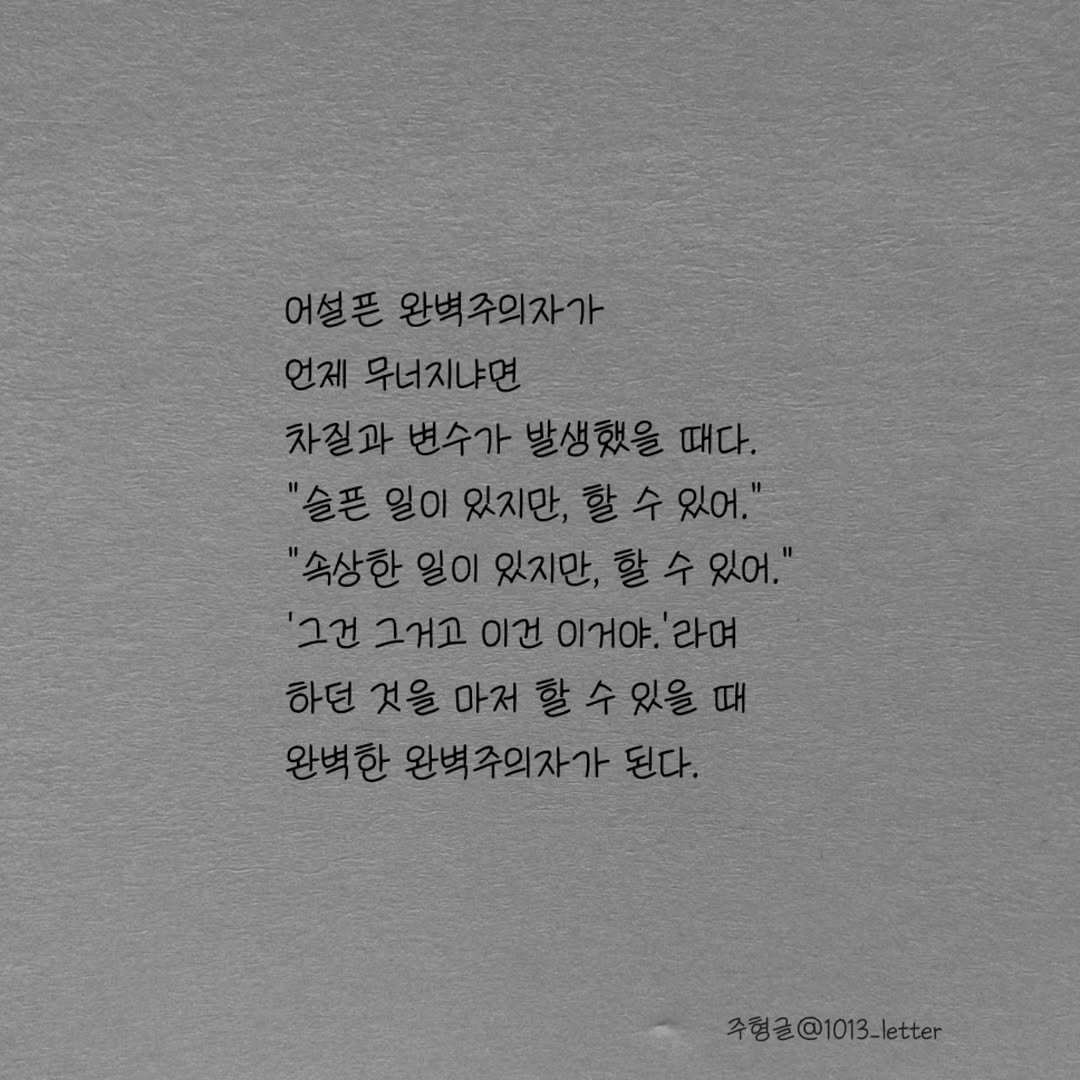 어설픈 완벽주의자가
언제 무너지냐면
차질과 변수가 발생했을 때다.
"슬픈 일이 있지만, 할 수 있어."
"속상한 일이 있지만, 할 수 있어."
'그건 그거고 이건 이거야.'라며
하던 것을 마저 할 수 있을 때
완벽한 완벽주의자가 된다.
주형글@1013_letter